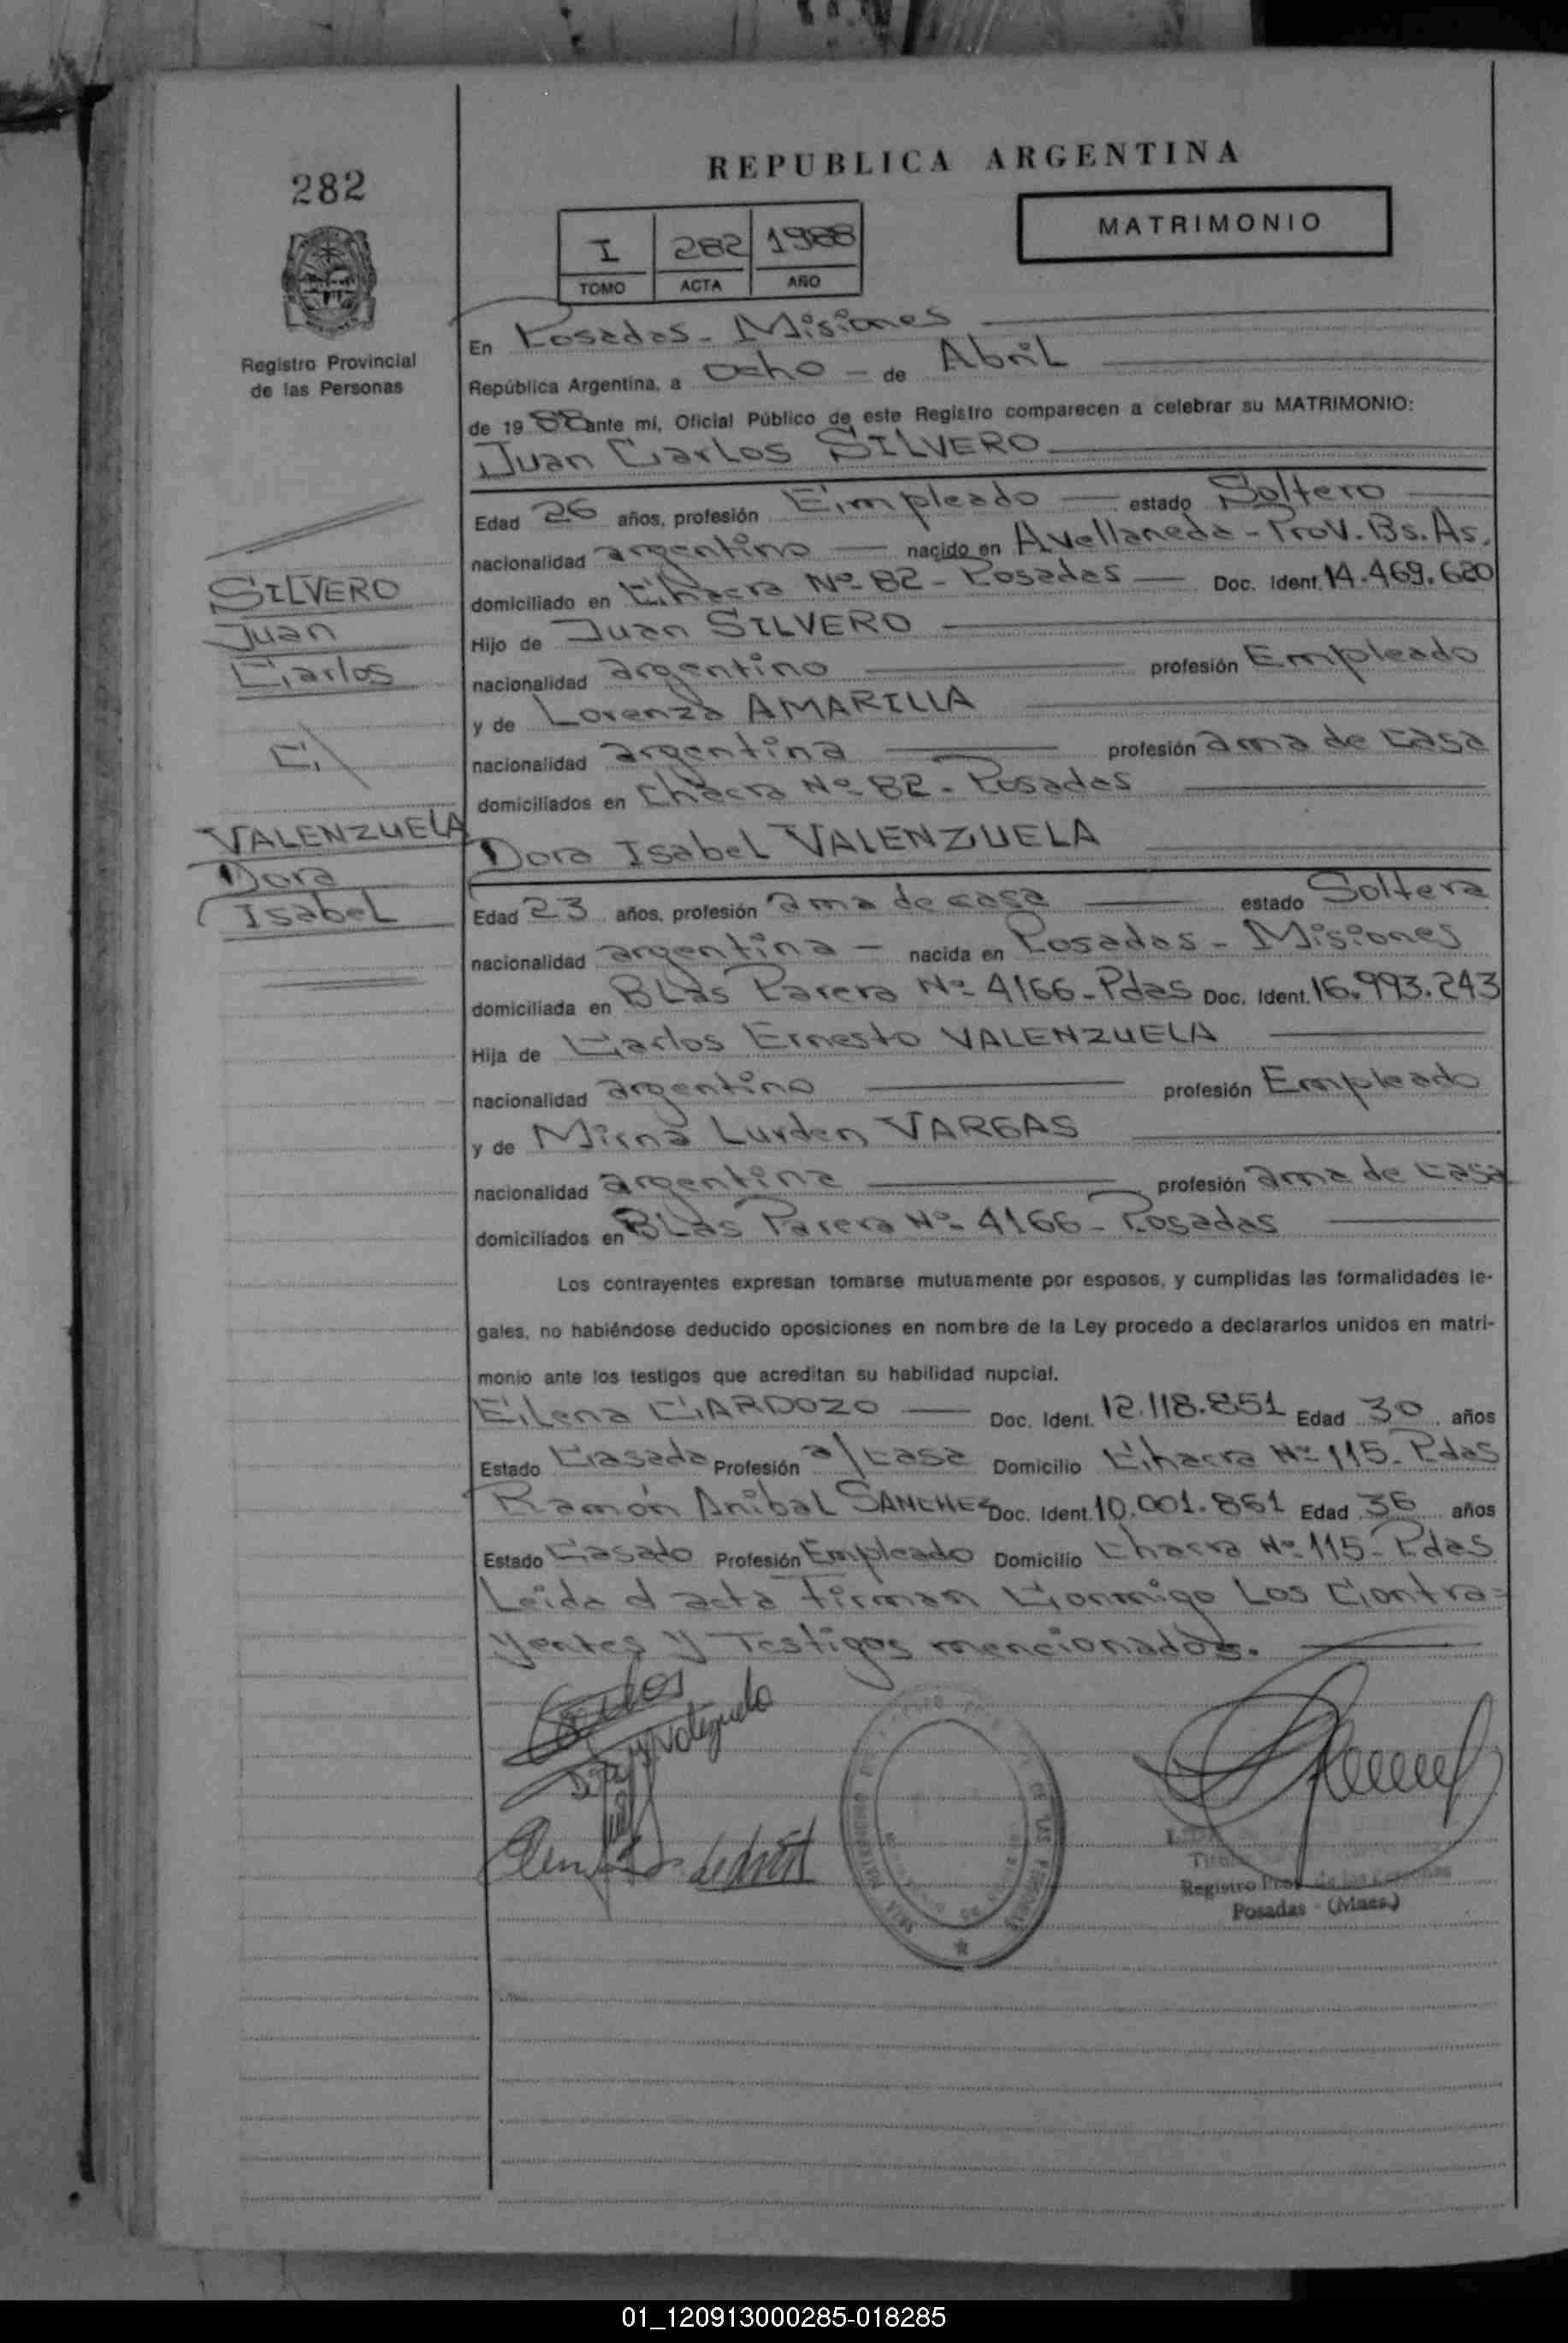 282
REPUBLICA ARGENTINA
MATRIMONIO
I 282 1988
TOMO ACTA AÑO
Registro Provincial
de las Personas
En Posadas - Misiones
República Argentina, a Ocho - de Abril
de 19 88 ante mí, Oficial Público de este Registro comparecen a celebrar su MATRIMONIO:
Juan Carlos SILVERO
Edad 26 años, profesión Empleado estado Soltero
nacionalidad argentino nacido en Avellaneda - Prov. Bs. As.
domiciliado en Chacra Nº 82 - Posadas Doc. Ident. 14.469.620
Hijo de Juan SILVERO
nacionalidad argentino profesión Empleado
y de Lorenza AMARILLA
nacionalidad argentina profesión ama de casa
domiciliados en Chacra Nº 82 - Posadas
SILVERO
Juan
Carlos
C/
VALENZUELA
Dora
Isabel
Dora Isabel VALENZUELA
Edad 23 años, profesión ama de casa estado Soltera
nacionalidad argentina - nacida en Posadas - Misiones
domiciliada en Blas Parera Nº 4166 - Pdas Doc. Ident. 16.993.243
Hija de Carlos Ernesto VALENZUELA
nacionalidad argentino profesión Empleado
y de Mirna Lurden VARGAS
nacionalidad argentina profesión ama de casa
domiciliados en Blas Parera Nº 4166 - Posadas
Los contrayentes expresan tomarse mutuamente por esposos, y cumplidas las formalidades le-
gales, no habiéndose deducido oposiciones en nombre de la Ley procedo a declararlos unidos en matri-
monio ante los testigos que acreditan su habilidad nupcial.
Elena CARDOZO Doc. Ident. 12.118.851 Edad 30 años
Estado Casada Profesión a/casa Domicilio Chacra Nº 115 - Pdas
Ramón Anibal SANCHEZ Doc. Ident. 10.001.861 Edad 36 años
Estado Casado Profesión Empleado Domicilio Chacra Nº 115 - Pdas
Leida el acta firman Conmigo Los Contra=
yentes y Testigos mencionados.
Registro Prov. de las Personas
Posadas - (Mnes.)
01_120913000285-018285